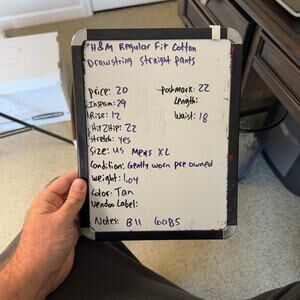 H&M Regular Fit Cotton
Drawstring straight pants
Price: 20
Poshmark: 22
Inseam: 29
Length:
Rise: 12
Waist: 18
Hip2Hip: 22
Stretch: yes
Size: US Mens XL
Condition: Gently worn pre owned
Weight: 1.04
Color: Tan
Vendoo Label:
Notes: B11 6085